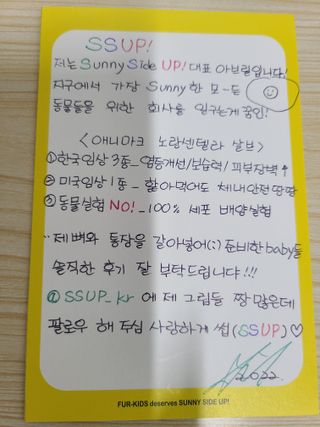 SSUP!
저는 Sunny Side UP! 대표 아보릴입니다!
지구에서 가장 Sunny한 모-든
동물들을 위한 회사를 일구는게 꿈인!
<애니마크 노랑센텔라 살브>
①한국임상 3종_염증개선/보습력/피부장벽↑
②미국임상 1종_핥아먹어도 체내안전 땅땅
③동물실험 NO!_100% 세포 배양실험
..제 뼈와 통장을 갈아넣어(;) 준비한 baby들
솔직한 후기 잘 부탁드립니댜!!!
@SSUP_kr 에 제 그림들 짱 많은데
팔로우 해 주심 사랑하게 썹(SSUP)♡
2022.
FUR-KIDS deserves SUNNY SIDE UP!